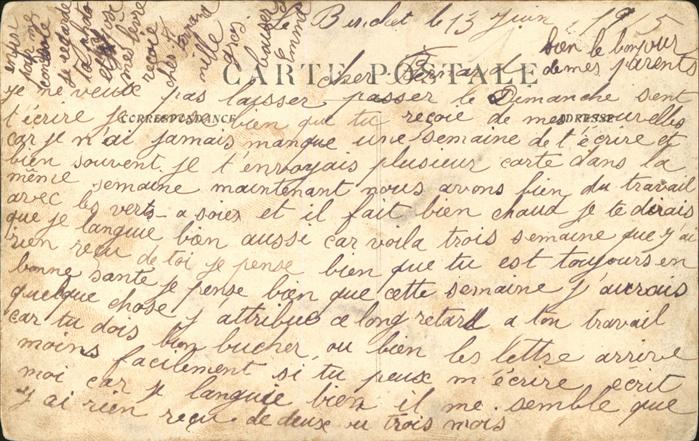 Le Buchet le 13 Juin 1915
bien le bonjour
de mes parents
CARTE POSTALE
Cher
CORRESPONDANCE
ADRESSE
je ne veux pas laisser passer le Dimanche sent
t'écrire je bien que tu reçoie de mes nouvelles
car je n'ai jamais manque une semaine de t'écrire et
bien souvent je t'envoyais plusieur carte dans la
même semaine maintenant nous avons bien du travail
avec les verts-a soies et il fait bien chaud je te dirais
que je languie bien aussi car voila trois semaine que j'ai
rien reçu de toi je pense bien que tu est toujours en
bonne sante je pense bien que cette semaine j'aurais
quelque chose j attribue ce long retard a ton travail
car tu dois bien bucher, ou bien les lettre arrive
moins facilement si tu peux m'écrire écrit
moi car je languie bien il me semble que
j ai rien reçu de deux ou trois mois
je regarde
mes livre
reçoie
mille
gros
baiser
Emma